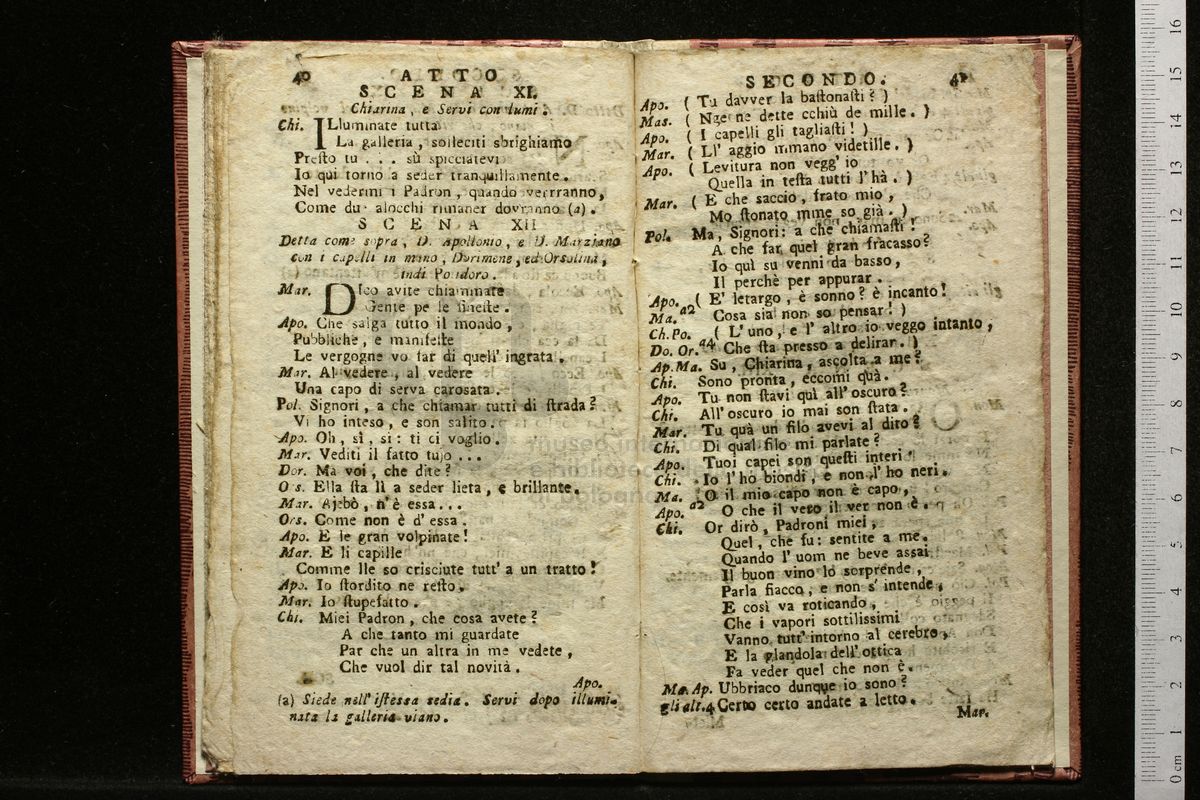 40
ATTO
SCENA XI.
Chiarina, e Servi con lumi.
Chi. ILluminate tutta
La galleria, solleciti sbrighiamo
Preſto tu . . . sù spicciatevi
Io qui torno a seder tranquillamente.
Nel vedermi i Padron, quando verrranno,
Come du alocchi rimaner dovranno (a).
SCENA XII
Detta come sopra, D. Apollonio, e D. Marziano
con i capelli in mano, Dorimene, ed Orsolina,
indi Polidoro.
Mar. DIco avite chiammate
Gente pe le fineſte.
Apo. Che salga tutto il mondo,
Pubbliche, e manifeſte
Le vergogne vo far di quell' ingrata.
Mar. Al vedere, al vedere
Una capo di serva carosata.
Pol. Signori, a che chiamar tutti di ſtrada?
Vi ho inteso, e son salito.
Apo. Oh, sì, si: ti ci voglio.
Mar. Vediti il fatto tujo . . .
Dor. Ma voi, che dite?
Ors. Ella ſta lì a seder lieta, e brillante.
Mar. Ajebò, n'è essa . . .
Ors. Come non è d' essa.
Apo. E le gran volpinate!
Mar. E li capille
Comme lle so crisciute tutt' a un tratto!
Apo. Io ſtordito ne reſto.
Mar. Io ſtupefatto.
Chi. Miei Padron, che cosa avete?
A che tanto mi guardate
Par che un altra in me vedete,
Che vuol dir tal novità.
Apo.
(a) Siede nell' iſtessa sedia. Servi dopo illumi-
nata la galleria viano.
SECONDO.
41
Apo. ( Tu davver la baſtonaſti? )
Mas. ( Nge ne dette cchiù de mille. )
Apo. ( I capelli gli tagliaſti! )
Mar. ( Ll' aggio mmano videtille. )
Apo. ( Levitura non vegg' io
Quella in teſta tutti l' hà. )
Mar. ( E che saccio, frato mio,
Mo ſtonato mme so già. )
Pol. Ma, Signori: a che chiamaſti!
A che far quel gran fracasso?
Io quì su venni da basso,
Il perchè per appurar.
Apo. ( E' letargo, è sonno? è incanto!
Ma. a2 Cosa sia non so pensar! )
Ch. Po. ( L' uno, e l' altro io veggo intanto,
Do. Or. a4 Che ſta presso a delirar. )
Ap. Ma. Su, Chiarina, ascolta a me?
Chi. Sono pronta, eccomi quà.
Apo. Tu non ſtavi quì all' oscuro?
Chi. All' oscuro io mai son ſtata.
Mar. Tu quà un filo avevi al dito?
Chi. Di qual filo mi parlate?
Apo. Tuoi capei son queſti interi
Chi. Io l' ho biondi, e non l' ho neri.
Ma. O il mio capo non è capo,
Apo. a2 O che il vero il ver non è.
Chi. Or dirò, Padroni miei,
Quel, che fu: sentite a me.
Quando l' uom ne beve assai
Il buon vino lo sorprende,
Parla fiacco, e non s' intende,
E così va roticando,
Che i vapori sottilissimi
Vanno tutt' intorno al cerebro,
E la glandola dell' ottica
Fa veder quel che non è.
Ma. Ap. Ubbriaco dunque io sono?
gli alt. 4 Certo certo andate a letto.
Mar.